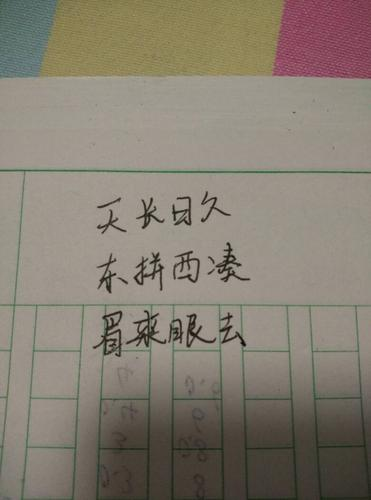 天长日久
东拼西凑
眉来眼去